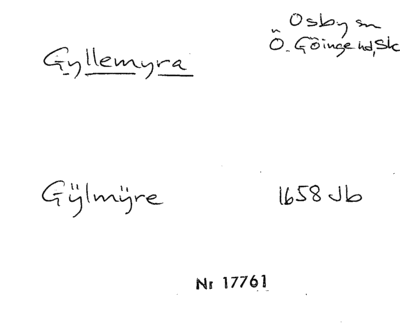 Gyllemyra
Osby sn
Ö. Göinge hd, Sk
Gÿlmÿre
1658 Jb
Nr 17761